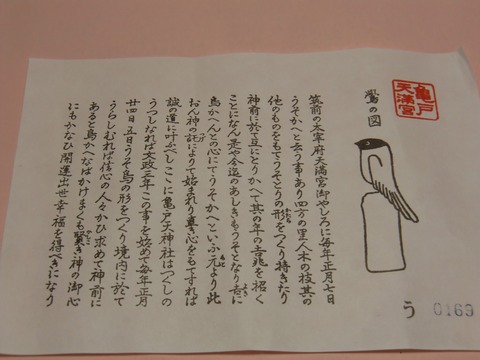 亀戸
天満宮
鷽の図
筑前の太宰府天満宮御やしろに毎年正月七日
うそかへと云う事あり四方の里人木の枝其の
他のものをもてうそとりの形をつくり持きたり
神前に於て互にとりかへて其の年の吉兆を招く
ことになん是や今迄のあしきもうそとなり吉に
鳥かへんとの心にてうそかへといふ元より此
おん神の託によりて始まれり直き心をもてすれば
誠の道に叶ふべしここに亀戸天神社はつくしの
うつしなれば文政三年この事を始めて毎年正月
廿四日五日うそ鳥の形をつくり境内に於て
うらしむれば信心の人々かひ求めて神前に
あると鳥かへなばかけまくも畏き神の御心
にもかなひ開運出世幸福を得べきになり
う 0169